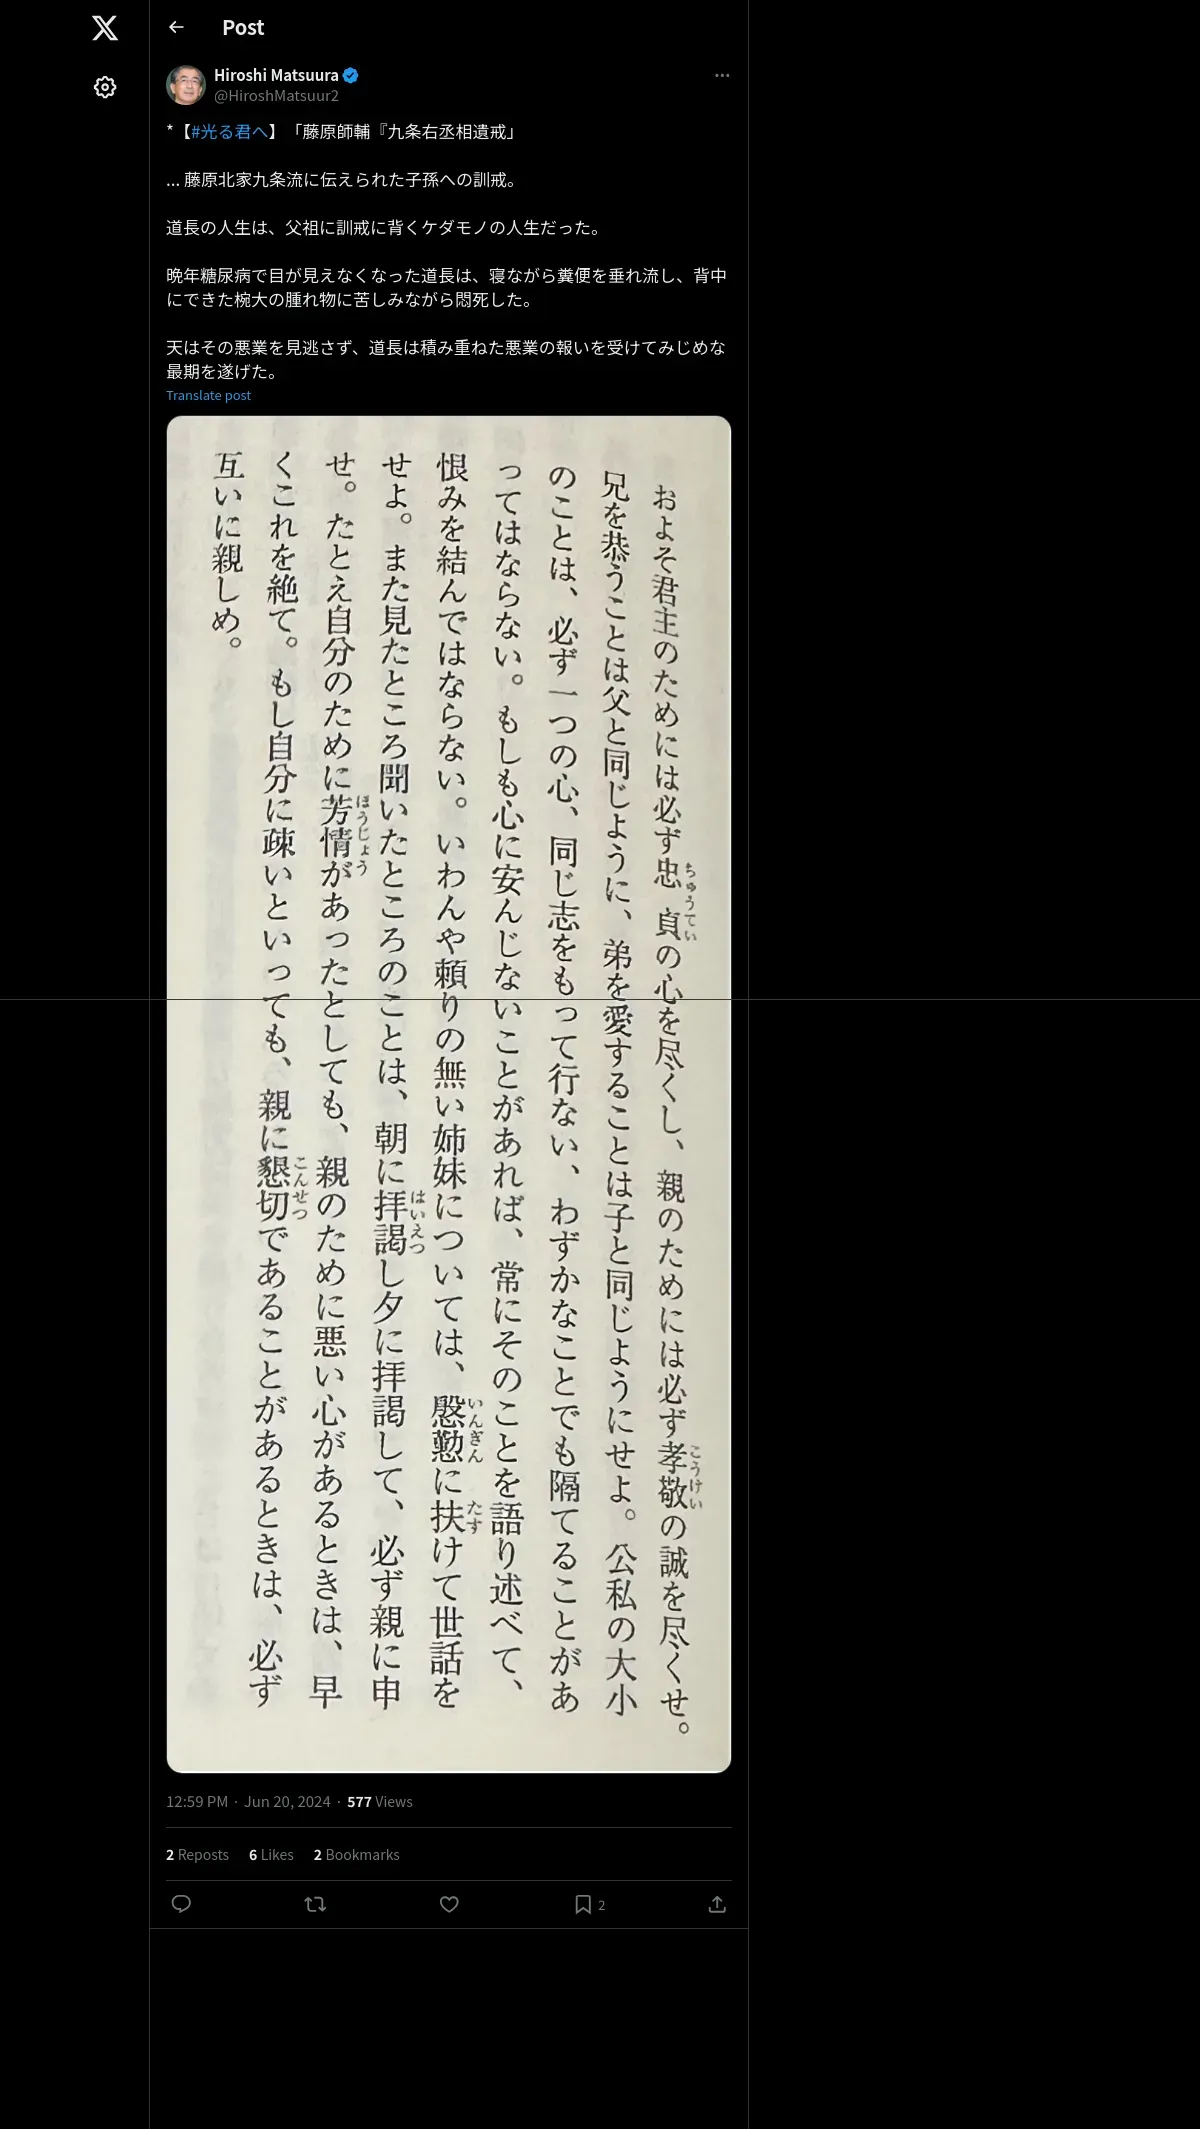 Post
Hiroshi Matsuura
@HiroshMatsuur2
*【#光る君へ】「藤原師輔『九条右丞相遺戒」
... 藤原北家九条流に伝えられた子孫への訓戒。
道長の人生は、父祖に訓戒に背くケダモノの人生だった。
晩年糖尿病で目が見えなくなった道長は、寝ながら糞便を垂れ流し、背中
にできた椀大の腫れ物に苦しみながら悶死した。
天はその悪業を見逃さず、道長は積み重ねた悪業の報いを受けてみじめな
最期を遂げた。
Translate post
およそ君主のためには必ず忠貞の心を尽くし、親のためには必ず孝敬の誠を尽くせ。
ちゅうてい
こうけい
兄を恭うことは父と同じように、弟を愛することは子と同じようにせよ。公私の大小
のことは、必ず一つの心、同じ志をもって行ない、わずかなことでも隔てることがあ
ってはならない。もしも心に安んじないことがあれば、常にそのことを語り述べて、
恨みを結んではならない。いわんや頼りの無い姉妹については、慇懃に扶けて世話を
いんぎん
たす
せよ。また見たところ聞いたところのことは、朝に拝謁し夕に拝謁して、必ず親に申
はいえつ
せ。たとえ自分のために芳情があったとしても、親のために悪い心があるときは、早
ほうじょう
くこれを絶て。もし自分に疎いといっても、親に懇切であることがあるときは、必ず
こんせつ
互いに親しめ。
12:59 PM · Jun 20, 2024 · 577 Views
2 Reposts 6 Likes 2 Bookmarks
2